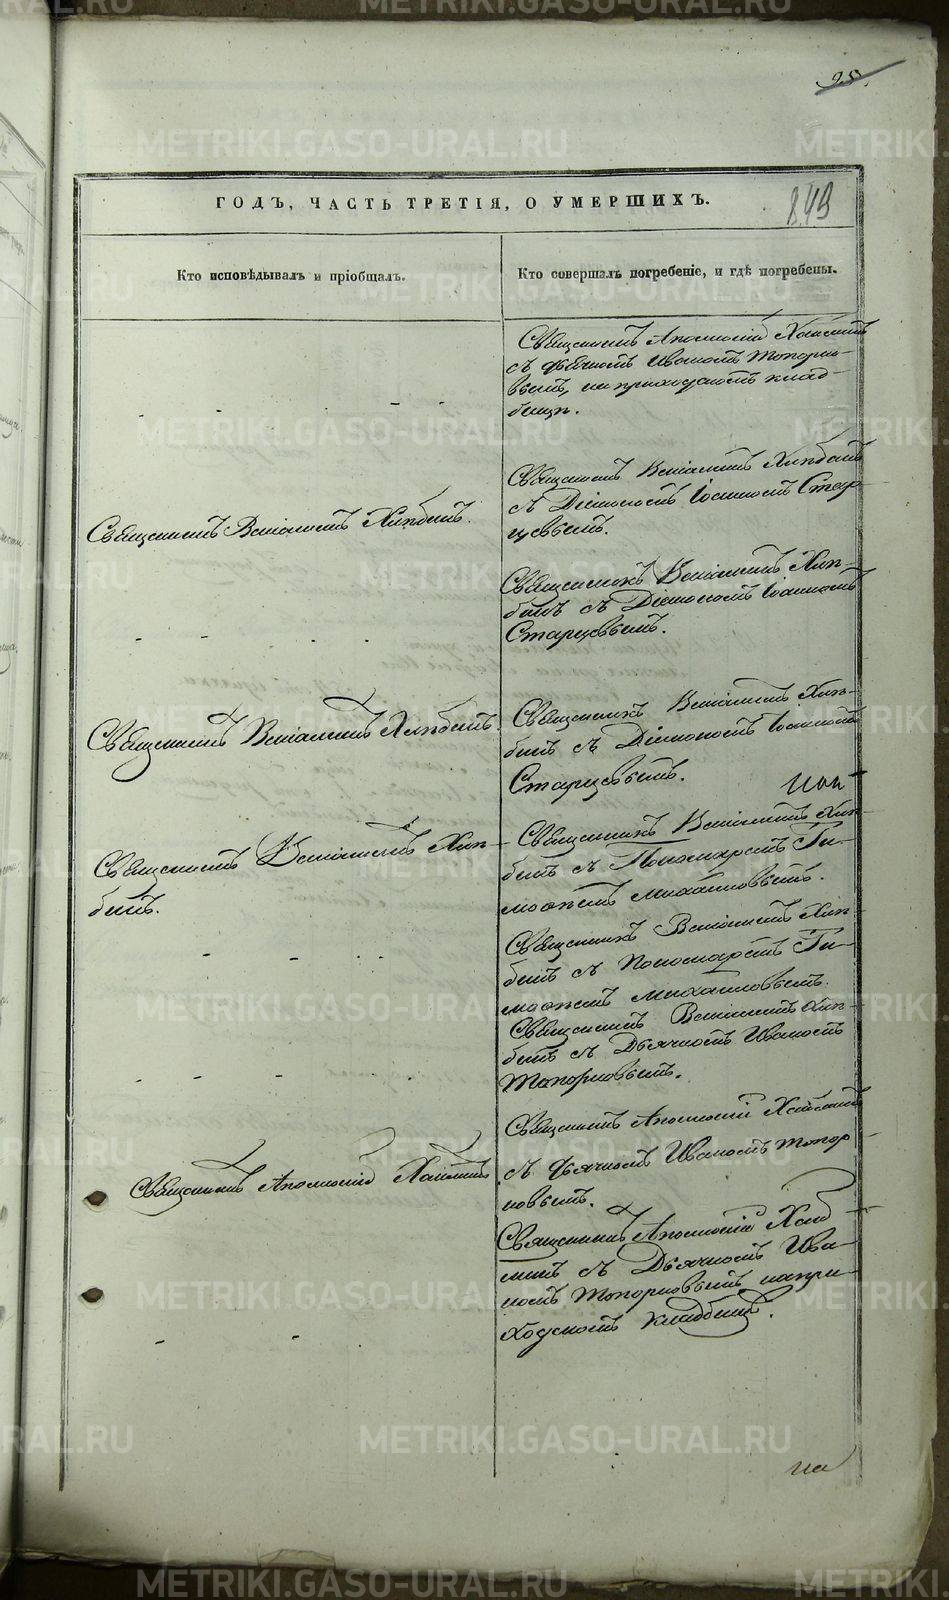 95.
849
ГОДЪ, ЧАСТЬ ТРЕТІЯ, О УМЕРШИХЪ.
Кто исповѣдывалъ и пріобщалъ.
Кто совершалъ погребеніе, и гдѣ погребены.
Священникъ Аполлоній
съ Дьячкомъ Иваномъ Топорко-
вымъ, на приходскомъ клад-
бищѣ.
Священникъ Веніаминъ Хлѣбинъ.
Священникъ Веніаминъ Хлѣбинъ
съ Діакономъ Іоанномъ Стар-
цевымъ.
Священникъ Веніаминъ Хлѣ-
бинъ съ Діакономъ Іоанномъ
Старцевымъ.
Священникъ Веніаминъ Хлѣбинъ.
Священникъ Веніаминъ Хлѣ-
бинъ съ Діакономъ Іоанномъ
Старцевымъ.
Священникъ Веніаминъ Хлѣ-
бинъ.
Священникъ Веніаминъ Хлѣ-
бинъ съ Пономаремъ Ти-
моѳеемъ Михайловымъ.
Священникъ Веніаминъ Хлѣ-
бинъ съ Пономаремъ Ти-
моѳеемъ Михайловымъ.
Священникъ Веніаминъ Хлѣ-
бинъ съ Дьячкомъ Иваномъ
Топорковымъ.
Священникъ Аполлоній
Священникъ Аполлоній
съ Дьячкомъ Иваномъ Топор-
ковымъ.
Священникъ Аполлоній
съ Дьячкомъ Ива-
номъ Топорковымъ на при-
ходскомъ кладбищѣ.
на
METRIKI.GASO-URAL.RU